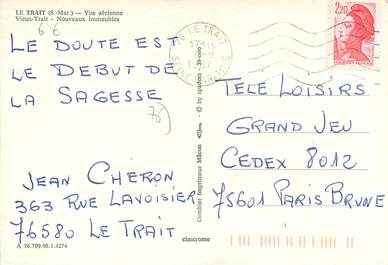 LE TRAIT (S.-Mar.) — Vue aérienne
Vieux-Trait - Nouveaux immeubles
LE DOUTE EST
LE DEBUT DE
LA SAGESSE
JEAN CHERON
363 RUE LAVOISIER
76580 LE TRAIT
A 76.709.98.1.4274
Combier Imprimeur Mâcon
cimcrome
76 LE TRAIT
SEINE
2,20
TELE LOISIRS
GRAND JEU
CEDEX 8012
75601 PARIS BRUNE